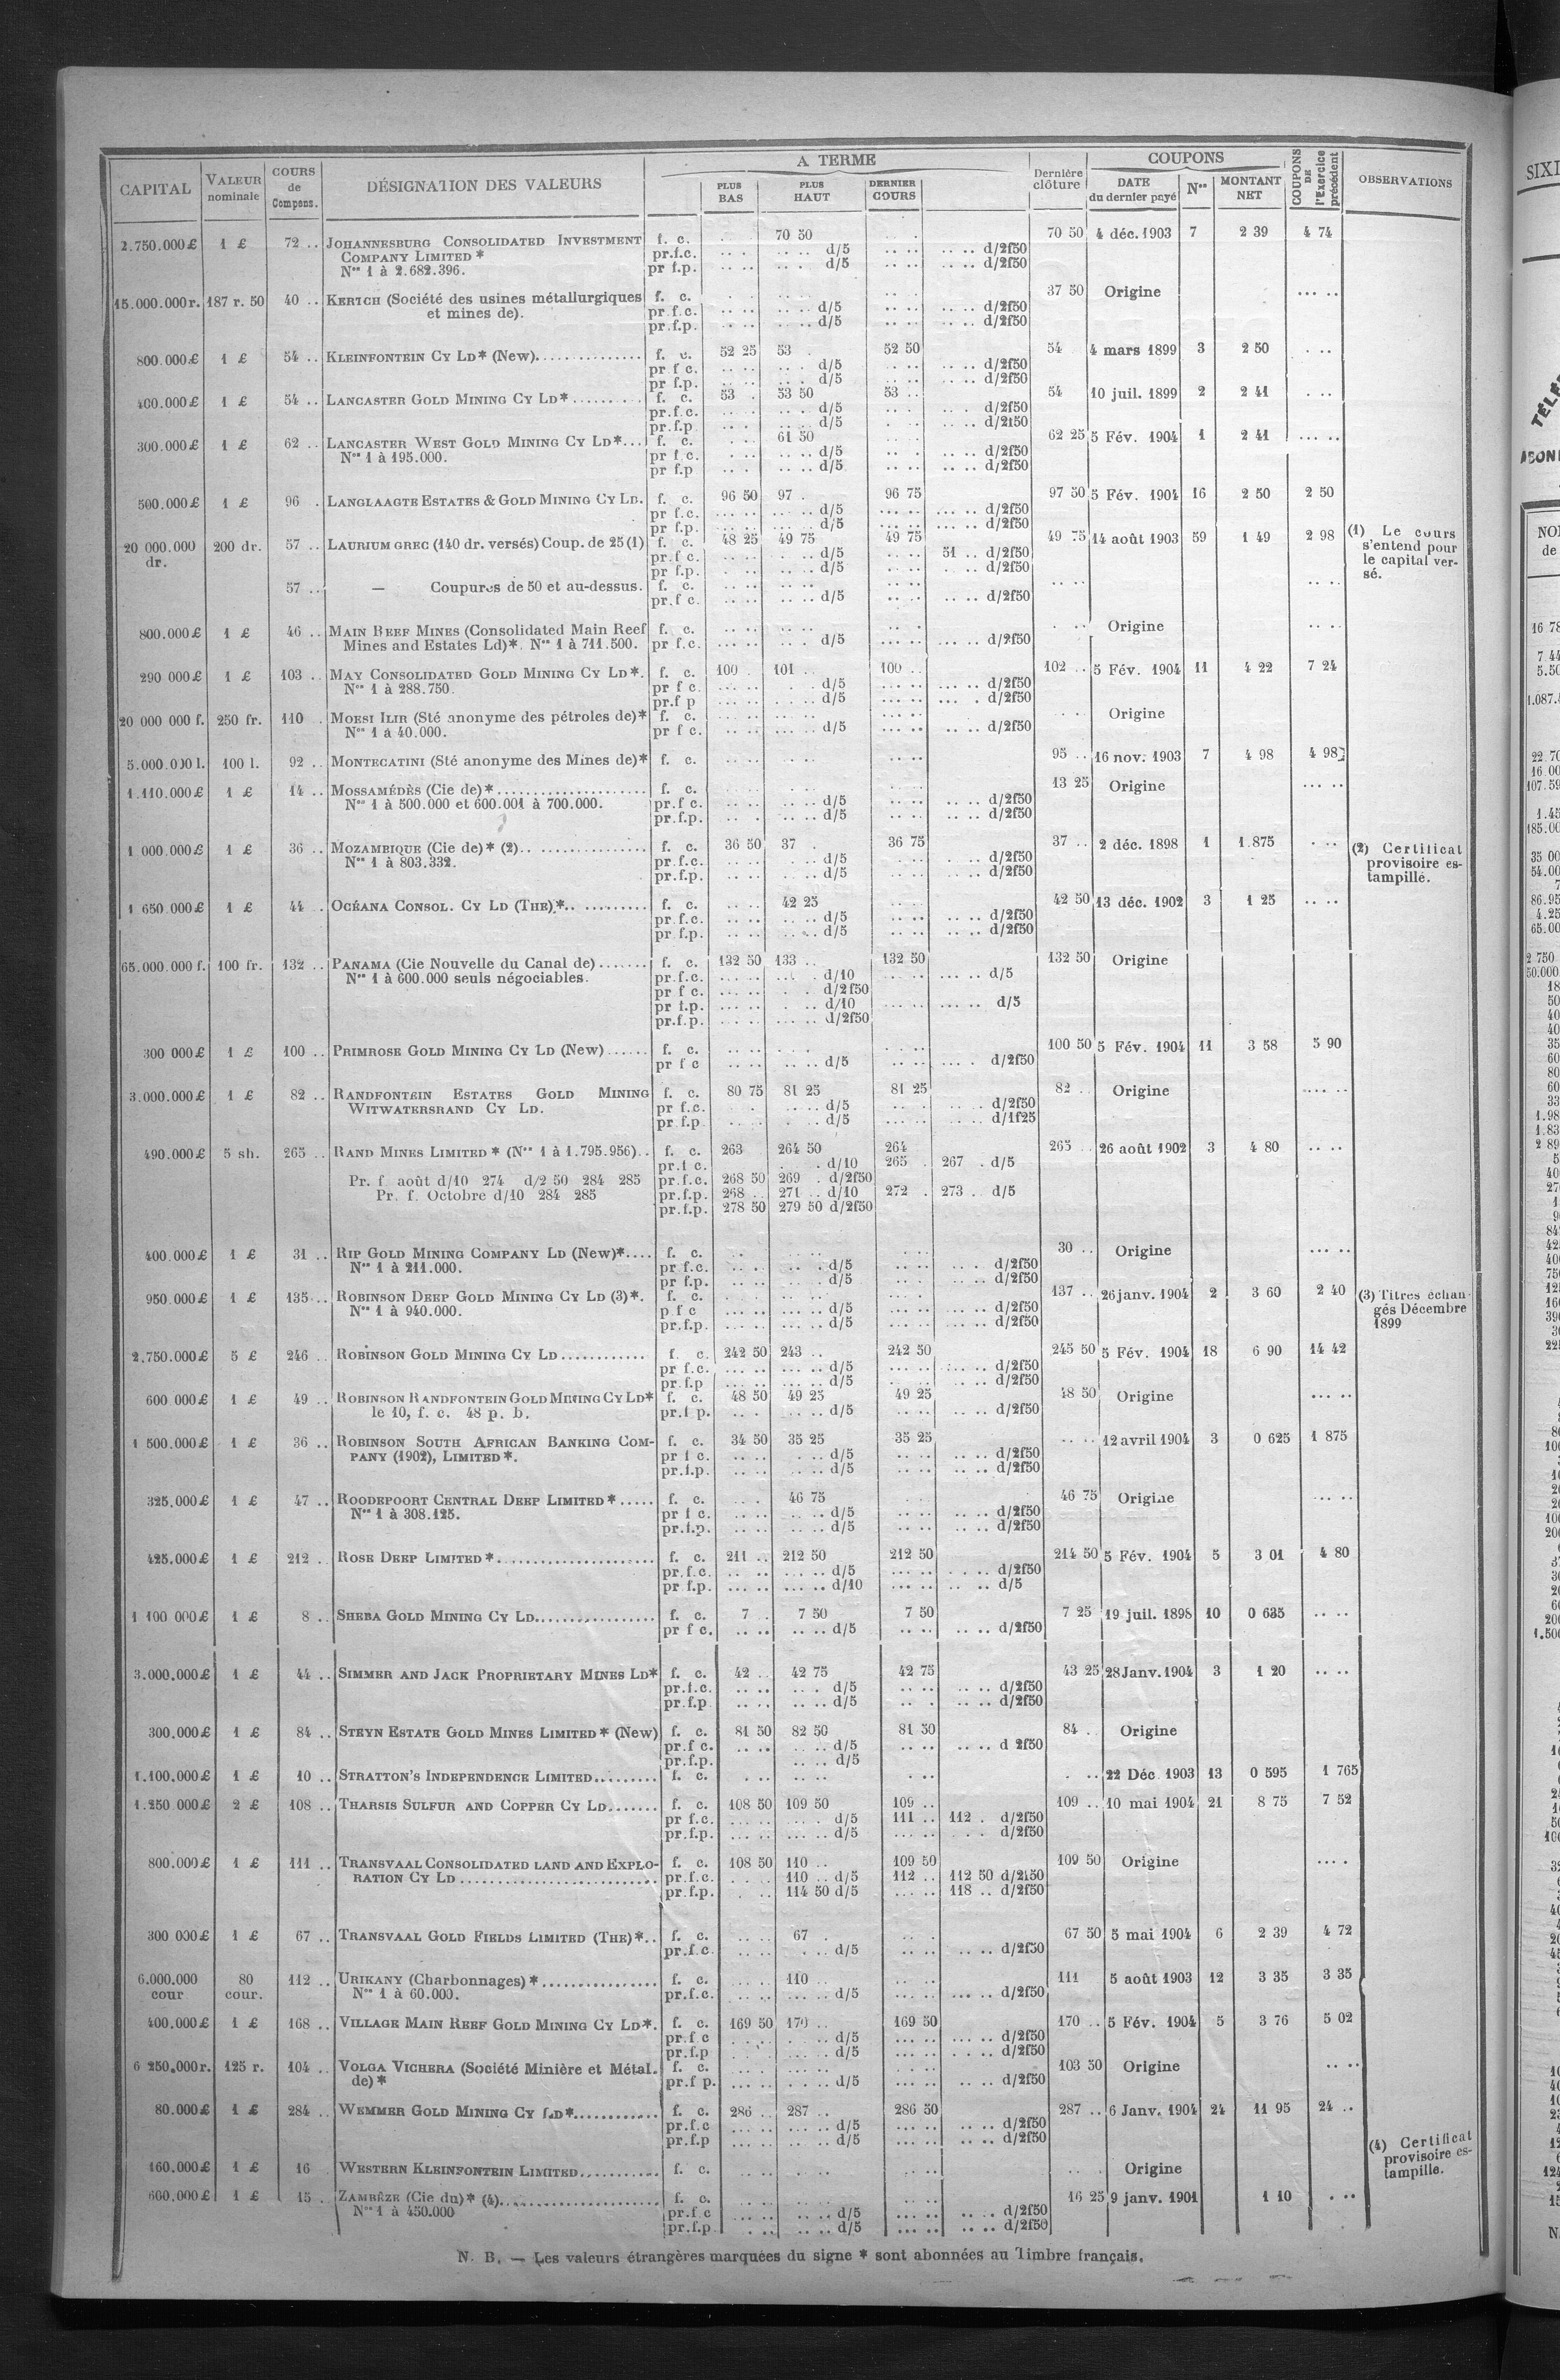 A TERME
COUPONS
CAPITAL VALEUR nominale COURS de Compens. DÉSIGNATION DES VALEURS PLUS BAS PLUS HAUT DERNIER COURS Dernière clôture DATE du dernier payé Nos MONTANT NET COUPONS DE l'Exercice précédent OBSERVATIONS
2.750.000£ 1 £ 72 .. JOHANNESBURG CONSOLIDATED INVESTMENT f. c. 70 50 70 50 4 déc. 1903 7 2 39 4 74
COMPANY LIMITED * pr.f.c. d/5 d/2f50
Nos 1 à 2.682.396. pr f.p. d/5 d/2f50
15.000.000r. 187 r. 50 40 .. KERTCH (Société des usines métallurgiques f. c. 37 50 Origine
et mines de). pr.f.c. d/5 d/2f50
pr.f.p. d/5 d/2f50
800.000£ 1 £ 54 .. KLEINFONTEIN CY LD* (New) f. c. 52 25 53 . 52 50 54 4 mars 1899 3 2 50
pr f c. d/5 d/2f50
pr f.p. d/5 d/2f50
400.000£ 1 £ 54 .. LANCASTER GOLD MINING CY LD* f. c. 53 . 53 50 53 .. 54 10 juil. 1899 2 2 41
pr.f.c. d/5 d/2f50
pr.f.p d/5 d/2f50
300.000£ 1 £ 62 .. LANCASTER WEST GOLD MINING CY LD*... f. c. 61 50 62 25 5 Fév. 1904 1 2 41
Nos 1 à 195.000. pr f.c. d/5 d/2f50
pr f.p d/5 d/2f50
500.000£ 1 £ 96 . LANGLAAGTE ESTATES & GOLD MINING CY LD. f. c. 96 50 97 . 96 75 97 50 5 Fév. 1904 16 2 50 2 50
pr f.c. d/5 d/2f50
pr f.p. d/5 d/2f50
20 000.000 dr. 200 dr. 57 .. LAURIUM GREC (140 dr. versés) Coup. de 25 (1) f. c. 48 25 49 75 49 75 49 75 14 août 1903 59 1 49 2 98 (1) Le cours s'entend pour le capital versé.
pr.f c. d/5 51 .. d/2f50
pr f.p. d/5 d/2f50
57 .. — Coupures de 50 et au-dessus. f. c.
pr.f c d/5 d/2f50
800.000£ 1 £ 46 .. MAIN REEF MINES (Consolidated Main Reef f. c. Origine
Mines and Estates Ld)*. Nos 1 à 711.500. pr f.c. d/5 d/2f50
290 000£ 1 £ 103 .. MAY CONSOLIDATED GOLD MINING CY LD*. f. c. 100 . 101 .. 100 .. 102 .. 5 Fév. 1904 11 4 22 7 24
Nos 1 à 288.750. pr f c. d/5 d/2f50
pr.f p d/5 d/2f50
20 000 000 f. 250 fr. 110 . MOESI ILIR (Sté anonyme des pétroles de)* f. c. Origine
Nos 1 à 40.000. pr f c. d/5 d/2f50
5.000.000 l. 100 l. 92 .. MONTECATINI (Sté anonyme des Mines de)* f. c. 95 .. 16 nov. 1903 7 4 98 4 98
1.110.000£ 1 £ 14 .. MOSSAMÉDÈS (Cie de)* f. c. 13 25 Origine
Nos 1 à 500.000 et 600.001 à 700.000. pr.f c. d/5 d/2f50
pr.f.p. d/5 d/2f50
1 000.000£ 1 £ 36 .. MOZAMBIQUE (Cie de)* (2) f. c. 36 50 37 . 36 75 37 .. 2 déc. 1898 1 1.875 (2) Certificat provisoire estampillé.
Nos 1 à 803.332. pr.f.c. d/5 d/2f50
pr.f.p. d/5 d/2f50
1 650.000£ 1 £ 44 . OCÉANA CONSOL. CY LD (THE)* f. c. 42 25 42 50 13 déc. 1902 3 1 25
pr.f.c. d/5 d/2f50
pr.f.p. d/5 d/2f50
65.000.000 f. 100 fr. 132 .. PANAMA (Cie Nouvelle du Canal de) f. c. 132 50 133 .. 132 50 132 50 Origine
Nos 1 à 600.000 seuls négociables. pr.f.c. d/10 d/5
pr f c. d/2f50
pr f.p. d/10 d/5
pr.f.p. d/2f50
300 000£ 1 £ 100 .. PRIMROSE GOLD MINING CY LD (New) f. c. 100 50 5 Fév. 1904 11 3 58 5 90
pr f c d/5 d/2f50
3.000.000£ 1 £ 82 .. RANDFONTEIN ESTATES GOLD MINING f. c. 80 75 81 25 81 25 82 .. Origine
WITWATERSRAND CY LD. pr f.c. d/5 d/2f50
pr f.p. d/5 d/1f25
490.000£ 5 sh. 265 .. RAND MINES LIMITED * (Nos 1 à 1.795.956).. f. c. 263 264 50 264 265 .. 26 août 1902 3 4 80
pr.f c. d/10 265 . 267 . d/5
Pr. f août d/10 274 d/2 50 284 285 pr.f.c. 268 50 269 . d/2f50
Pr. f. Octobre d/10 284 285 pr.f.p. 268 .. 271 .. d/10 272 . 273 .. d/5
pr.f.p. 278 50 279 50 d/2f50
400.000£ 1 £ 31 .. RIP GOLD MINING COMPANY LD (New)*.... f. c. 30 .. Origine
Nos 1 à 211.000. pr f.c. d/5 d/2f50
pr f.p. d/5 d/2f50
950.000£ 1 £ 135 .. ROBINSON DEEP GOLD MINING CY LD (3)*. f. c. 137 .. 26 janv. 1904 2 3 60 2 40 (3) Titres échangés Décembre 1899
Nos 1 à 940.000. p f c d/5 d/2f50
pr.f.p. d/5 d/2f50
2.750.000£ 5 £ 246 .. ROBINSON GOLD MINING CY LD f. c. 242 50 243 .. 242 50 245 50 5 Fév. 1904 18 6 90 14 42
pr f.c. d/5 d/2f50
pr.f.p d/5 d/2f50
600 000£ 1 £ 49 .. ROBINSON RANDFONTEIN GOLD MINING CY LD* f. c. 48 50 49 25 49 25 48 50 Origine
le 10, f. c. 48 p. b. pr.f p. d/5 d/2f50
1 500.000£ 1 £ 36 .. ROBINSON SOUTH AFRICAN BANKING COM- f. c. 34 50 35 25 35 25 12 avril 1904 3 0 625 1 875
PANY (1902), LIMITED*. pr f c. d/5 d/2f50
pr.f.p. d/5 d/2f50
325.000£ 1 £ 47 .. ROODEPOORT CENTRAL DEEP LIMITED* f. c. 46 75 46 75 Origine
Nos 1 à 308.125. pr f c. d/5 d/2f50
pr.f.p. d/5 d/2f50
425.000£ 1 £ 212 .. ROSE DEEP LIMITED* f. c. 211 .. 212 50 212 50 214 50 5 Fév. 1904 5 3 01 4 80
pr.f.c. d/5 d/2f50
pr f.p. d/10 d/5
1 100 000£ 1 £ 8 .. SHEBA GOLD MINING CY LD f. c. 7 . 7 50 7 50 7 25 19 juil. 1898 10 0 635
pr f c. d/5 d/2f50
3.000.000£ 1 £ 44 .. SIMMER AND JACK PROPRIETARY MINES LD* f. c. 42 .. 42 75 42 75 43 25 28 Janv. 1904 3 1 20
pr.f.c. d/5 d/2f50
pr.f.p d/5 d/2f50
300.000£ 1 £ 84 .. STEYN ESTATE GOLD MINES LIMITED* (New) f. c. 81 50 82 50 81 50 84 . Origine
pr.f c. d/5 d 2f50
pr.f.p. d/5
1.100.000£ 1 £ 10 .. STRATTON'S INDEPENDENCE LIMITED f. c. 22 Déc 1903 13 0 595 1 765
1.250 000£ 2 £ 108 .. THARSIS SULFUR AND COPPER CY LD f. c. 108 50 109 50 109 .. 109 .. 10 mai 1904 21 8 75 7 52
pr f.c. d/5 111 .. 112 . d/2f50
pr.f.p. d/5 d/2f50
800.000£ 1 £ 111 .. TRANSVAAL CONSOLIDATED LAND AND EXPLO- f. c. 108 50 110 .. 109 50 109 50 Origine
RATION CY LD pr.f.c. 110 .. d/5 112 .. 112 50 d/2f50
pr.f.p. 114 50 d/5 118 .. d/2f50
300 000£ 1 £ 67 .. TRANSVAAL GOLD FIELDS LIMITED (THE)*.. f. c. 67 . 67 50 5 mai 1904 6 2 39 4 72
pr.f.c. d/5 d/2f50
6.000.000 cour 80 cour. 112 .. URIKANY (Charbonnages)* f. c. 110 .. 111 5 août 1903 12 3 35 3 35
Nos 1 à 60.000. pr.f.c. d/5 d/2f50
400.000£ 1 £ 168 .. VILLAGE MAIN REEF GOLD MINING CY LD*. f. c. 169 50 170 .. 169 50 170 .. 5 Fév. 1904 5 3 76 5 02
pr.f c d/5 d/2f50
pr.f.p d/5 d/2f50
6 250.000r. 125 r. 104 .. VOLGA VICHERA (Société Minière et Métal. f. c. 103 50 Origine
de)* pr.f p. d/5 d/2f50
80.000£ 1 £ 284 .. WEMMER GOLD MINING CY LD* f. c. 286 .. 287 .. 286 50 287 .. 6 Janv. 1904 24 11 95 24 ..
pr.f.c d/5 d/2f50
pr.f.p d/5 d/2f50
160.000£ 1 £ 16 WESTERN KLEINFONTEIN LIMITED f. c. Origine (4) Certificat provisoire estampille.
600.000£ 1 £ 15 .. ZAMBÈZE (Cie du)* (4) f. c. 16 25 9 janv. 1901 1 10
Nos 1 à 450.000 pr.f c d/5 d/2f50
pr.f.p. d/5 d/2f50
N. B. — Les valeurs étrangères marquées du signe * sont abonnées au Timbre français.